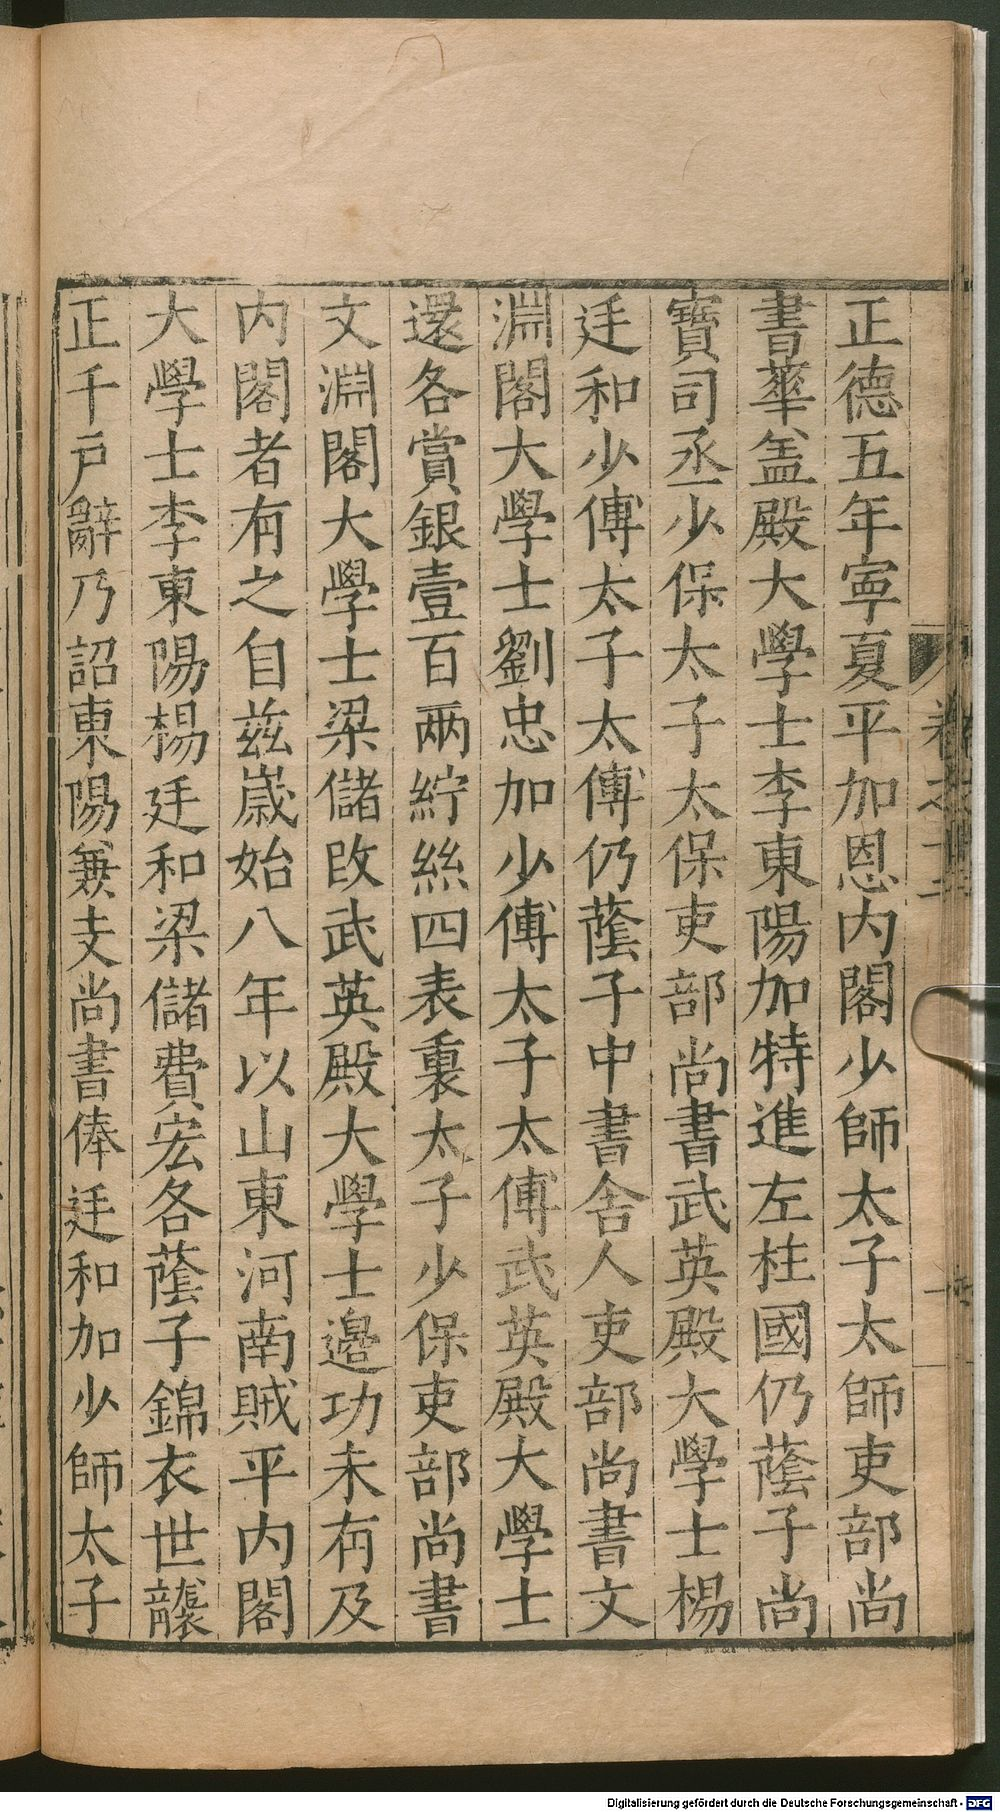 正德五年寧夏平加恩内閣少師太子太師吏部尚
書華盖殿大學士李東陽加特進左柱國仍蔭子尚
寶司丞少保太子太保吏部尚書武英殿大學士楊
廷和少傅太子太傅仍蔭子中書舍人吏部尚書文
淵閣大學士劉忠加少傅太子太傅武英殿大學士
還各賞銀壹百兩紵絲四表裏太子少保吏部尚書
文淵閣大學士梁儲改武英殿大學士邊功未有及
内閣者有之自兹歲始八年以山東河南賊平内閣
大學士李東陽楊廷和梁儲費宏各蔭子錦衣世襲
正千戶辭乃詔東陽兼支尚書俸廷和加少師太子
Digitalisierung gefördert durch die Deutsche Forschungsgemeinschaft - DFG